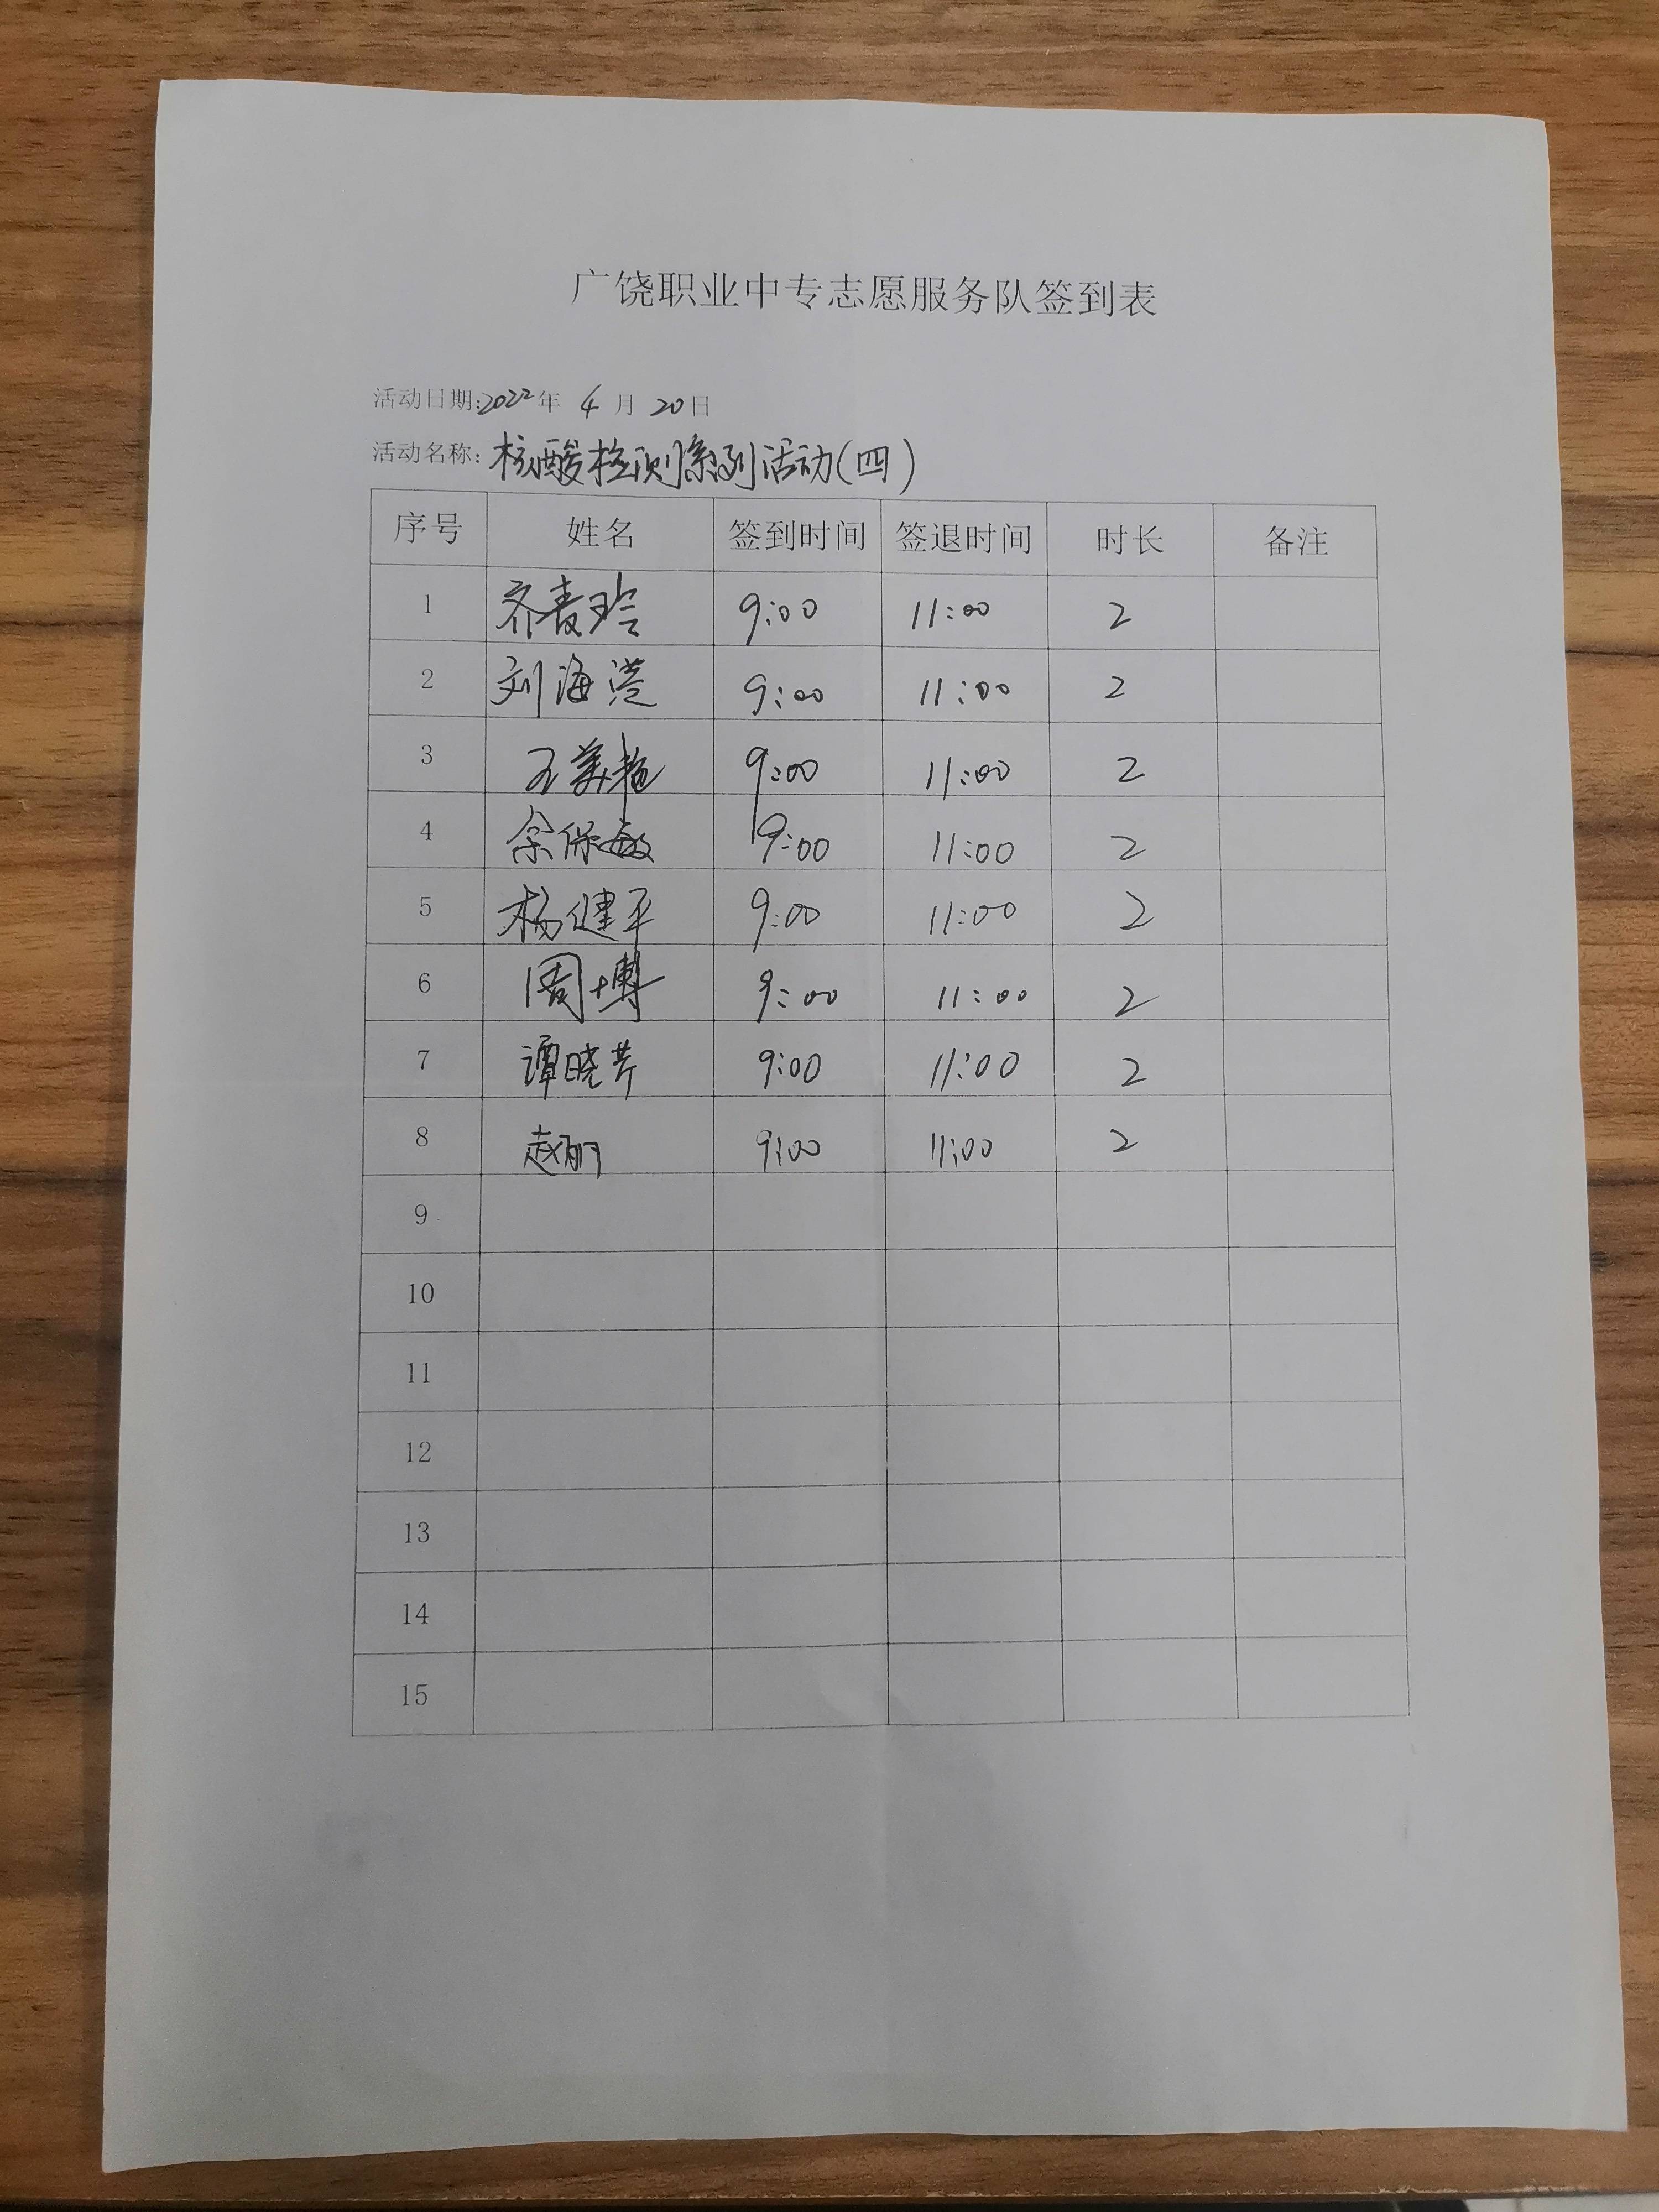 广饶职业中专志愿服务队签到表
活动日期:2022年 4 月 20日
活动名称: 核酸检测系列活动(四)
序号 姓名 签到时间 签退时间 时长 备注
1 齐青玲 9:00 11:00 2
2 刘海滢 9:00 11:00 2
3 王美艳 9:00 11:00 2
4 余保敏 9:00 11:00 2
5 杨健平 9:00 11:00 2
6 周博 9:00 11:00 2
7 谭晓芹 9:00 11:00 2
8 赵丽 9:00 11:00 2
9
10
11
12
13
14
15